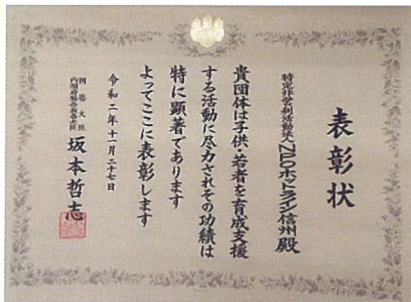 表彰状
特定非営利活動法人NPOホットライン信州 殿
貴団体は子供・若者を育成支援
する活動に尽力されその功績は
特に顕著であります
よってここに表彰します
令和二年十一月二十七日
国務大臣
坂本哲志